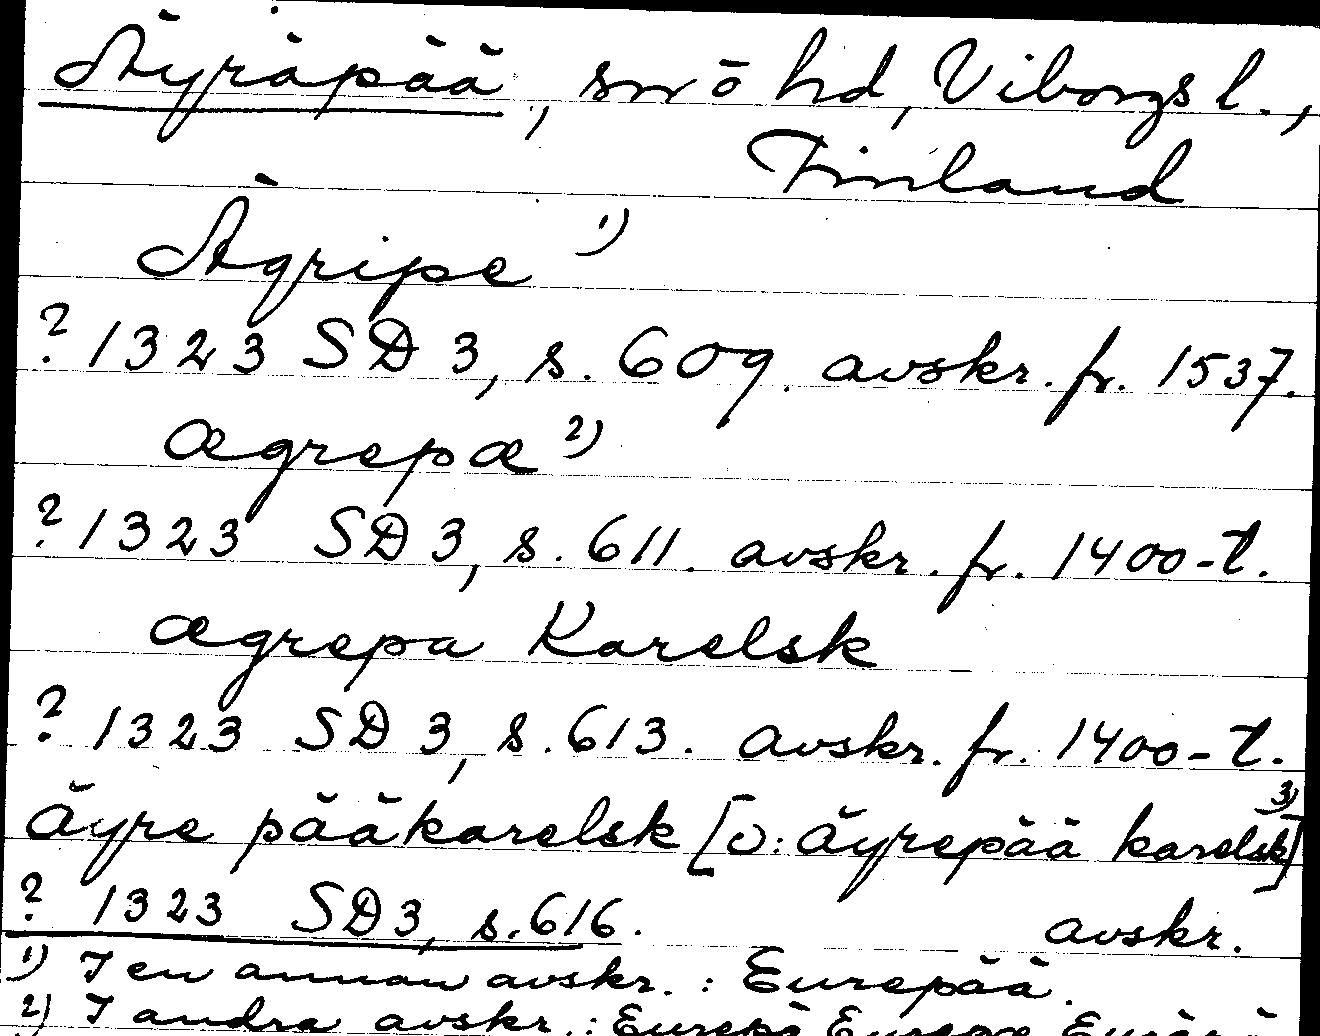 Äyräpää, sn o hd, Viborgs l.,
Finland
Ägripe 1)
? 1323 SD 3, s. 609. avskr. fr. 1537.
ægrepæ 2)
? 1323 SD 3, s. 611. avskr. fr. 1400-t.
ægrepa Karelsk
? 1323 SD 3, s. 613. avskr. fr. 1400-t.
äyre pääkarelsk [ɔ: äyrepää karelsk] 3)
? 1323 SD 3, s. 616. avskr.
1) I en annan avskr. : Eurepää.
2) I andra avskr. : Eurepä Eurepæ